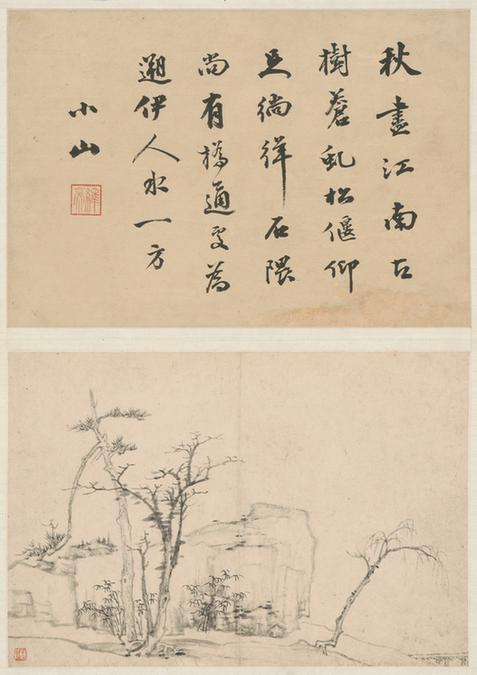 秋盡江南古
樹蒼虬松偃仰
足徜徉石隈
尚有橋通處為
遡伊人水一方
小山